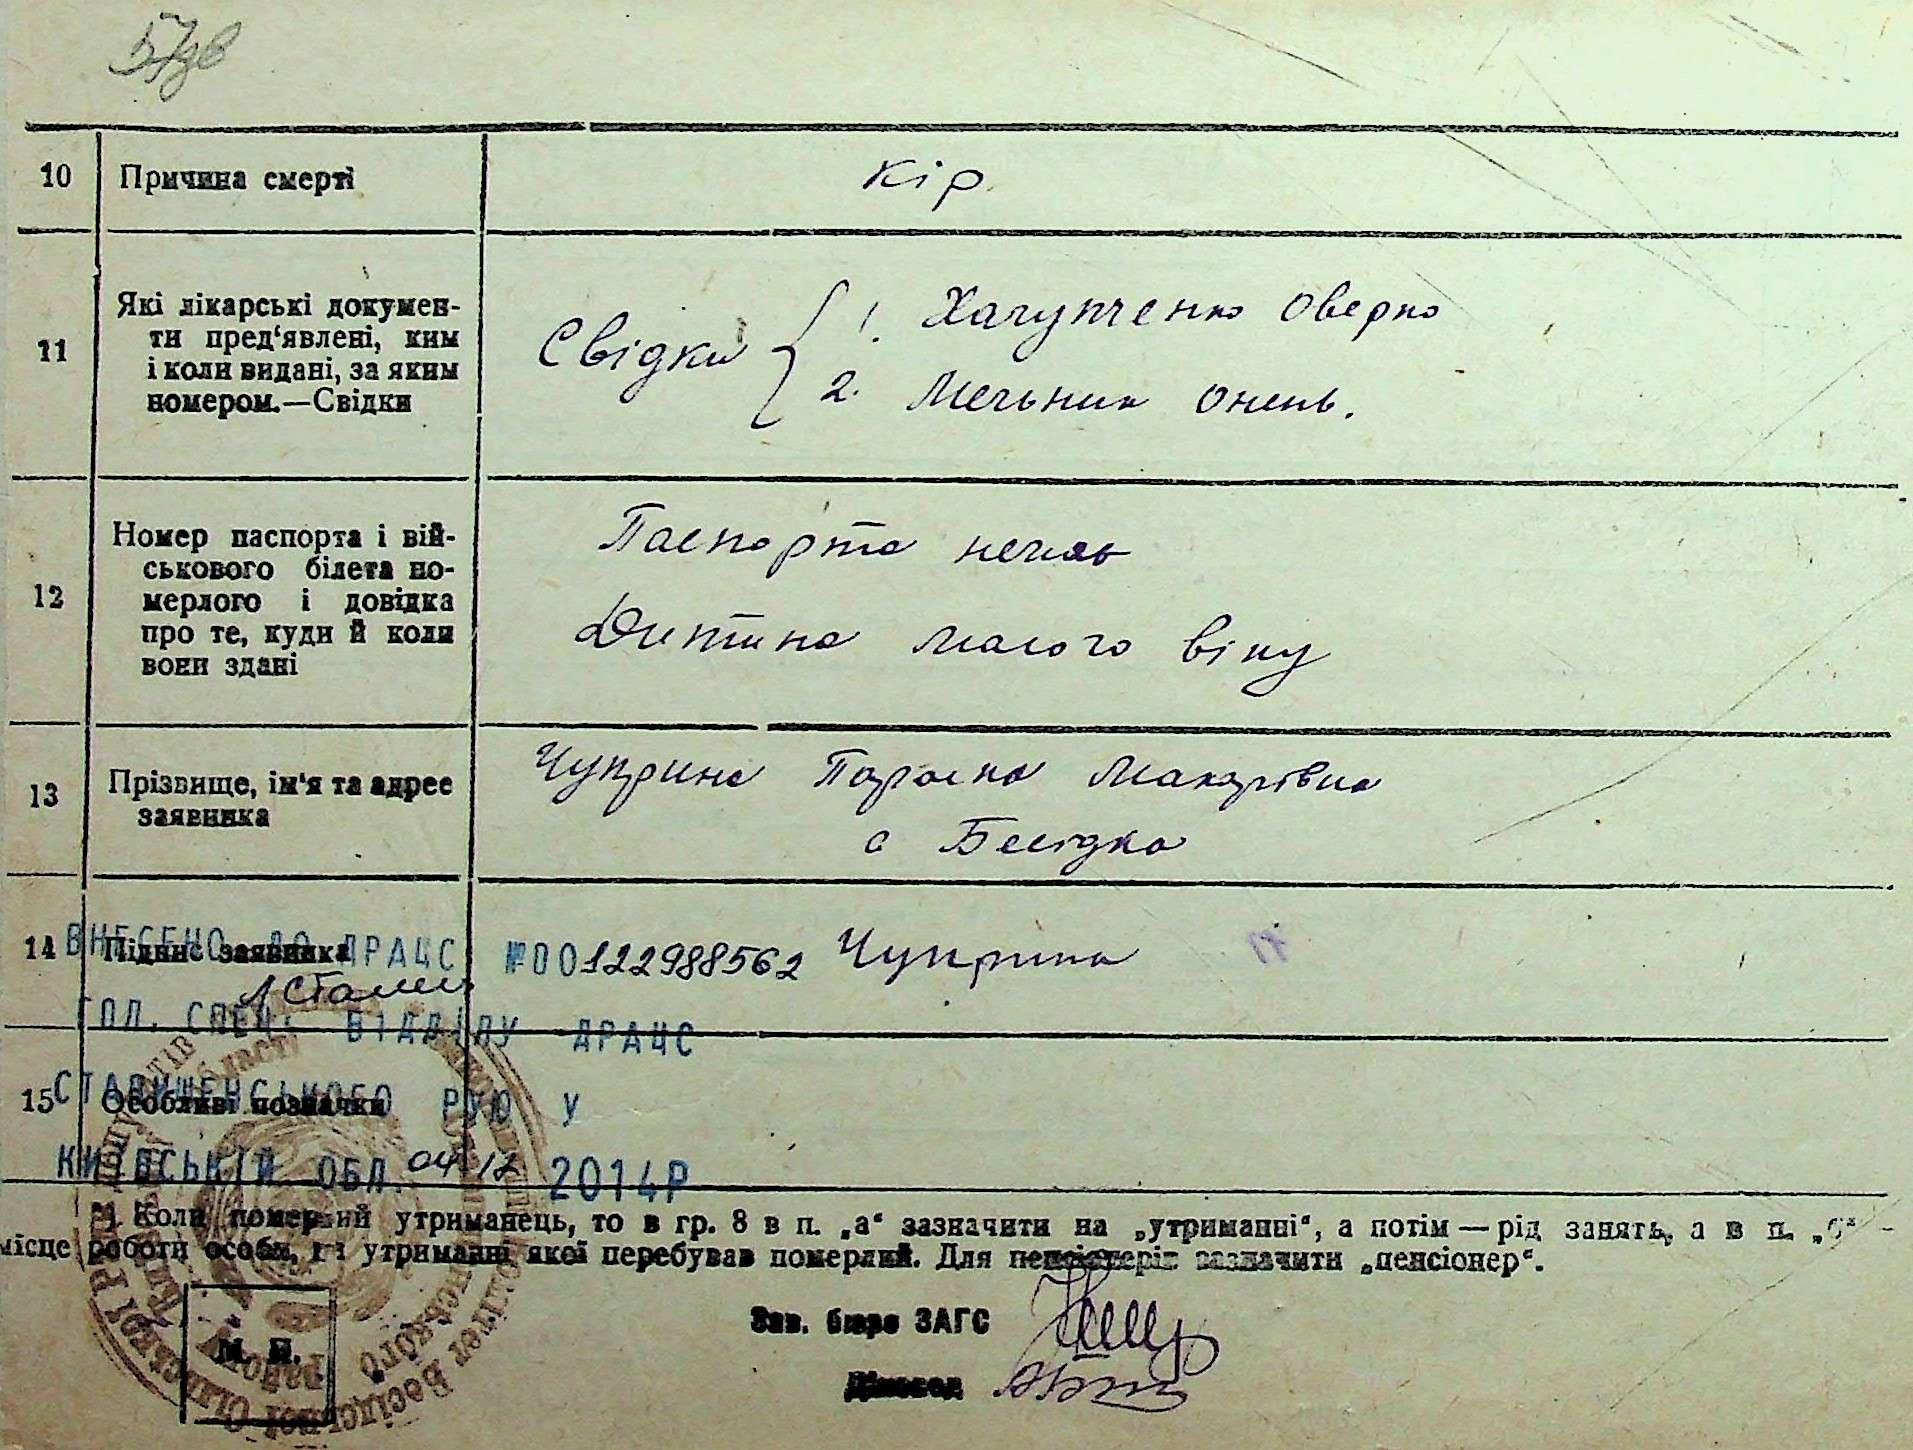 57зв
10 Причина смерті
кір
11 Які лікарські докумен-
ти пред‘явлені, ким
і коли видані, за яким
номером.—Свідки
Свідки
1. Оверко
2. Мельник
12 Номер паспорта і вій-
ськового білета по-
мерлого і довідка
про те, куди й коли
вони здані
Паспорта немає
Дитина малого віку
13 Прізвище, ім‘я та адрес
заявника
Чуприна Параска Макарівна
с Бесідка
14 Підпис заявника
Чуприна
ВНЕСЕНО ДО ДРАЦС №00122988562
ГОЛ. СПЕЦ. ВІДДІЛУ ДРАЦС
15 Особливі позначки
СТАВИЩЕНСЬКОГО РУЮ У
КИЇВСЬКІЙ ОБЛ. 04 12 2014Р
*) Коли померлий утриманець, то в гр. 8 в п. „а“ зазначити на „утриманні“, а потім — рід занять, а в п. „б“ -
місце роботи особи, на утриманні якої перебував померлий. Для пенсіонерів зазначити „пенсіонер“.
Зав. бюро ЗАГС
Діловод
М. П.